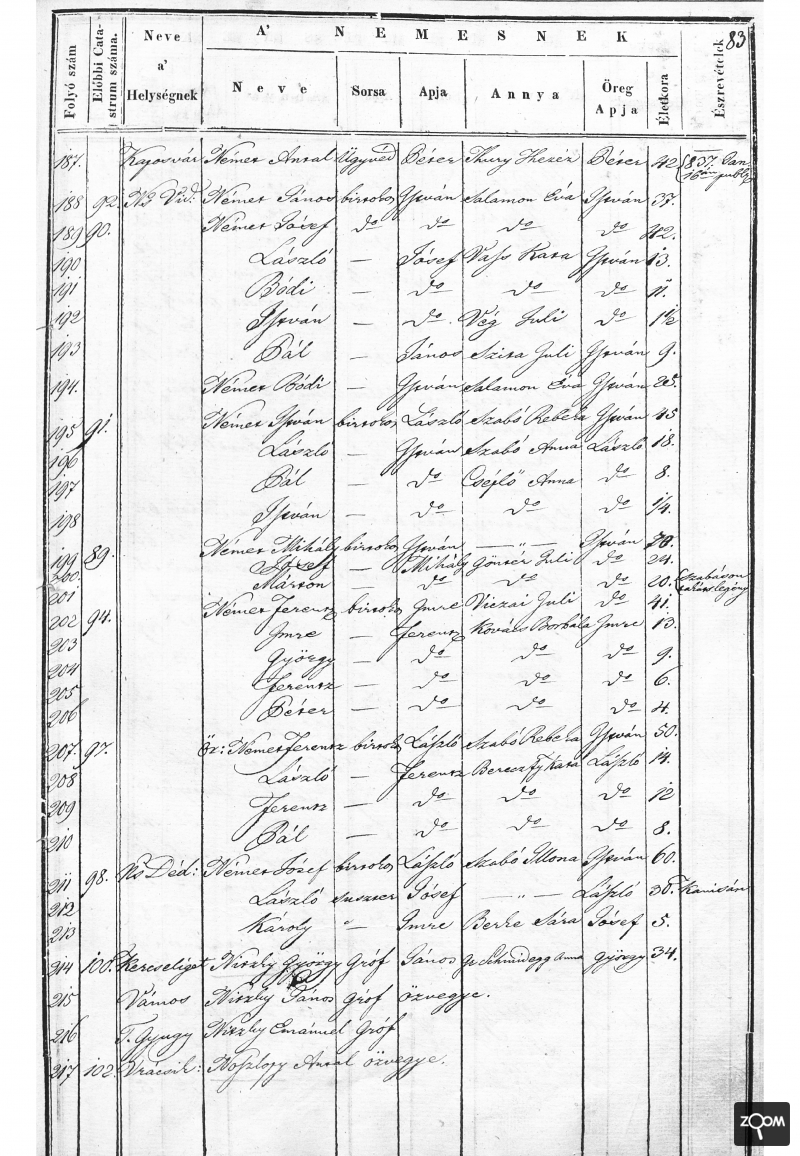 83
A' NEMESNEK
Folyó szám | Előbbi Catastrum száma. | Neve a' Helységnek | Neve | Sorsa | Apja | Annya | Öreg Apja | Életkora | Észrevételek
187. Kaposvár Német Antal Ügyvéd Péter Thury Theréz Péter 42 837 Jan. 16án publ.
188 92. Ns Vid: Német János birtokos István Salamon Éva István 37.
189 90. Német Jósef do do do do 42.
190 László — Jósef Vass Kata István 13.
191 Bódi — do do do 11.
192 István — do Vég Juli do 1½
193 Pál — János Szita Juli István 9.
194. Német Bódi — István Salamon Éva István 25.
195 91. Német István birtokos László Szabó Rebeka István 45
196 László — István Szabó Anna László 18.
197 Pál — do Anna do 8.
198 István — do do do ¼.
199 89. Német Mihály birtokos István — „ — István 70.
200. Jósef — Mihály Göntér Juli do 24.
201 Márton — do do do 20. Szabóson
202 94. Német Ferentz birtok. Imre Viczai Juli do 41.
203 Imre — Ferentz Kovács Borbála Imre 13.
204 György — do do do 9.
205 Ferentz — do do do 6.
206 Péter — do do do 4.
207. 97. Öz: Német Ferentz birtokos László Szabó Rebeka István 50.
208 László — Ferentz Bereczfy Kata László 14.
209 Ferentz — do do do 12
210 Pál — do do do 8.
211 98. Ns Déd: Német Jósef birtokos László Szabó Illona István 60.
212 László suszter Jósef — „ — László 30. Kanisán
213 Károly „ Imre Berke Sára Jósef 5.
214 100. Kercseliget Niczky György Gróf János Gr Schmidegg Anna György 34.
215 Vámos Niczky János gróf özvegye.
216 T. Gyugy Niczky Emánuel Gróf
217 102. Vrácsik: Noszlopy Antal özvegye.
ZOOM